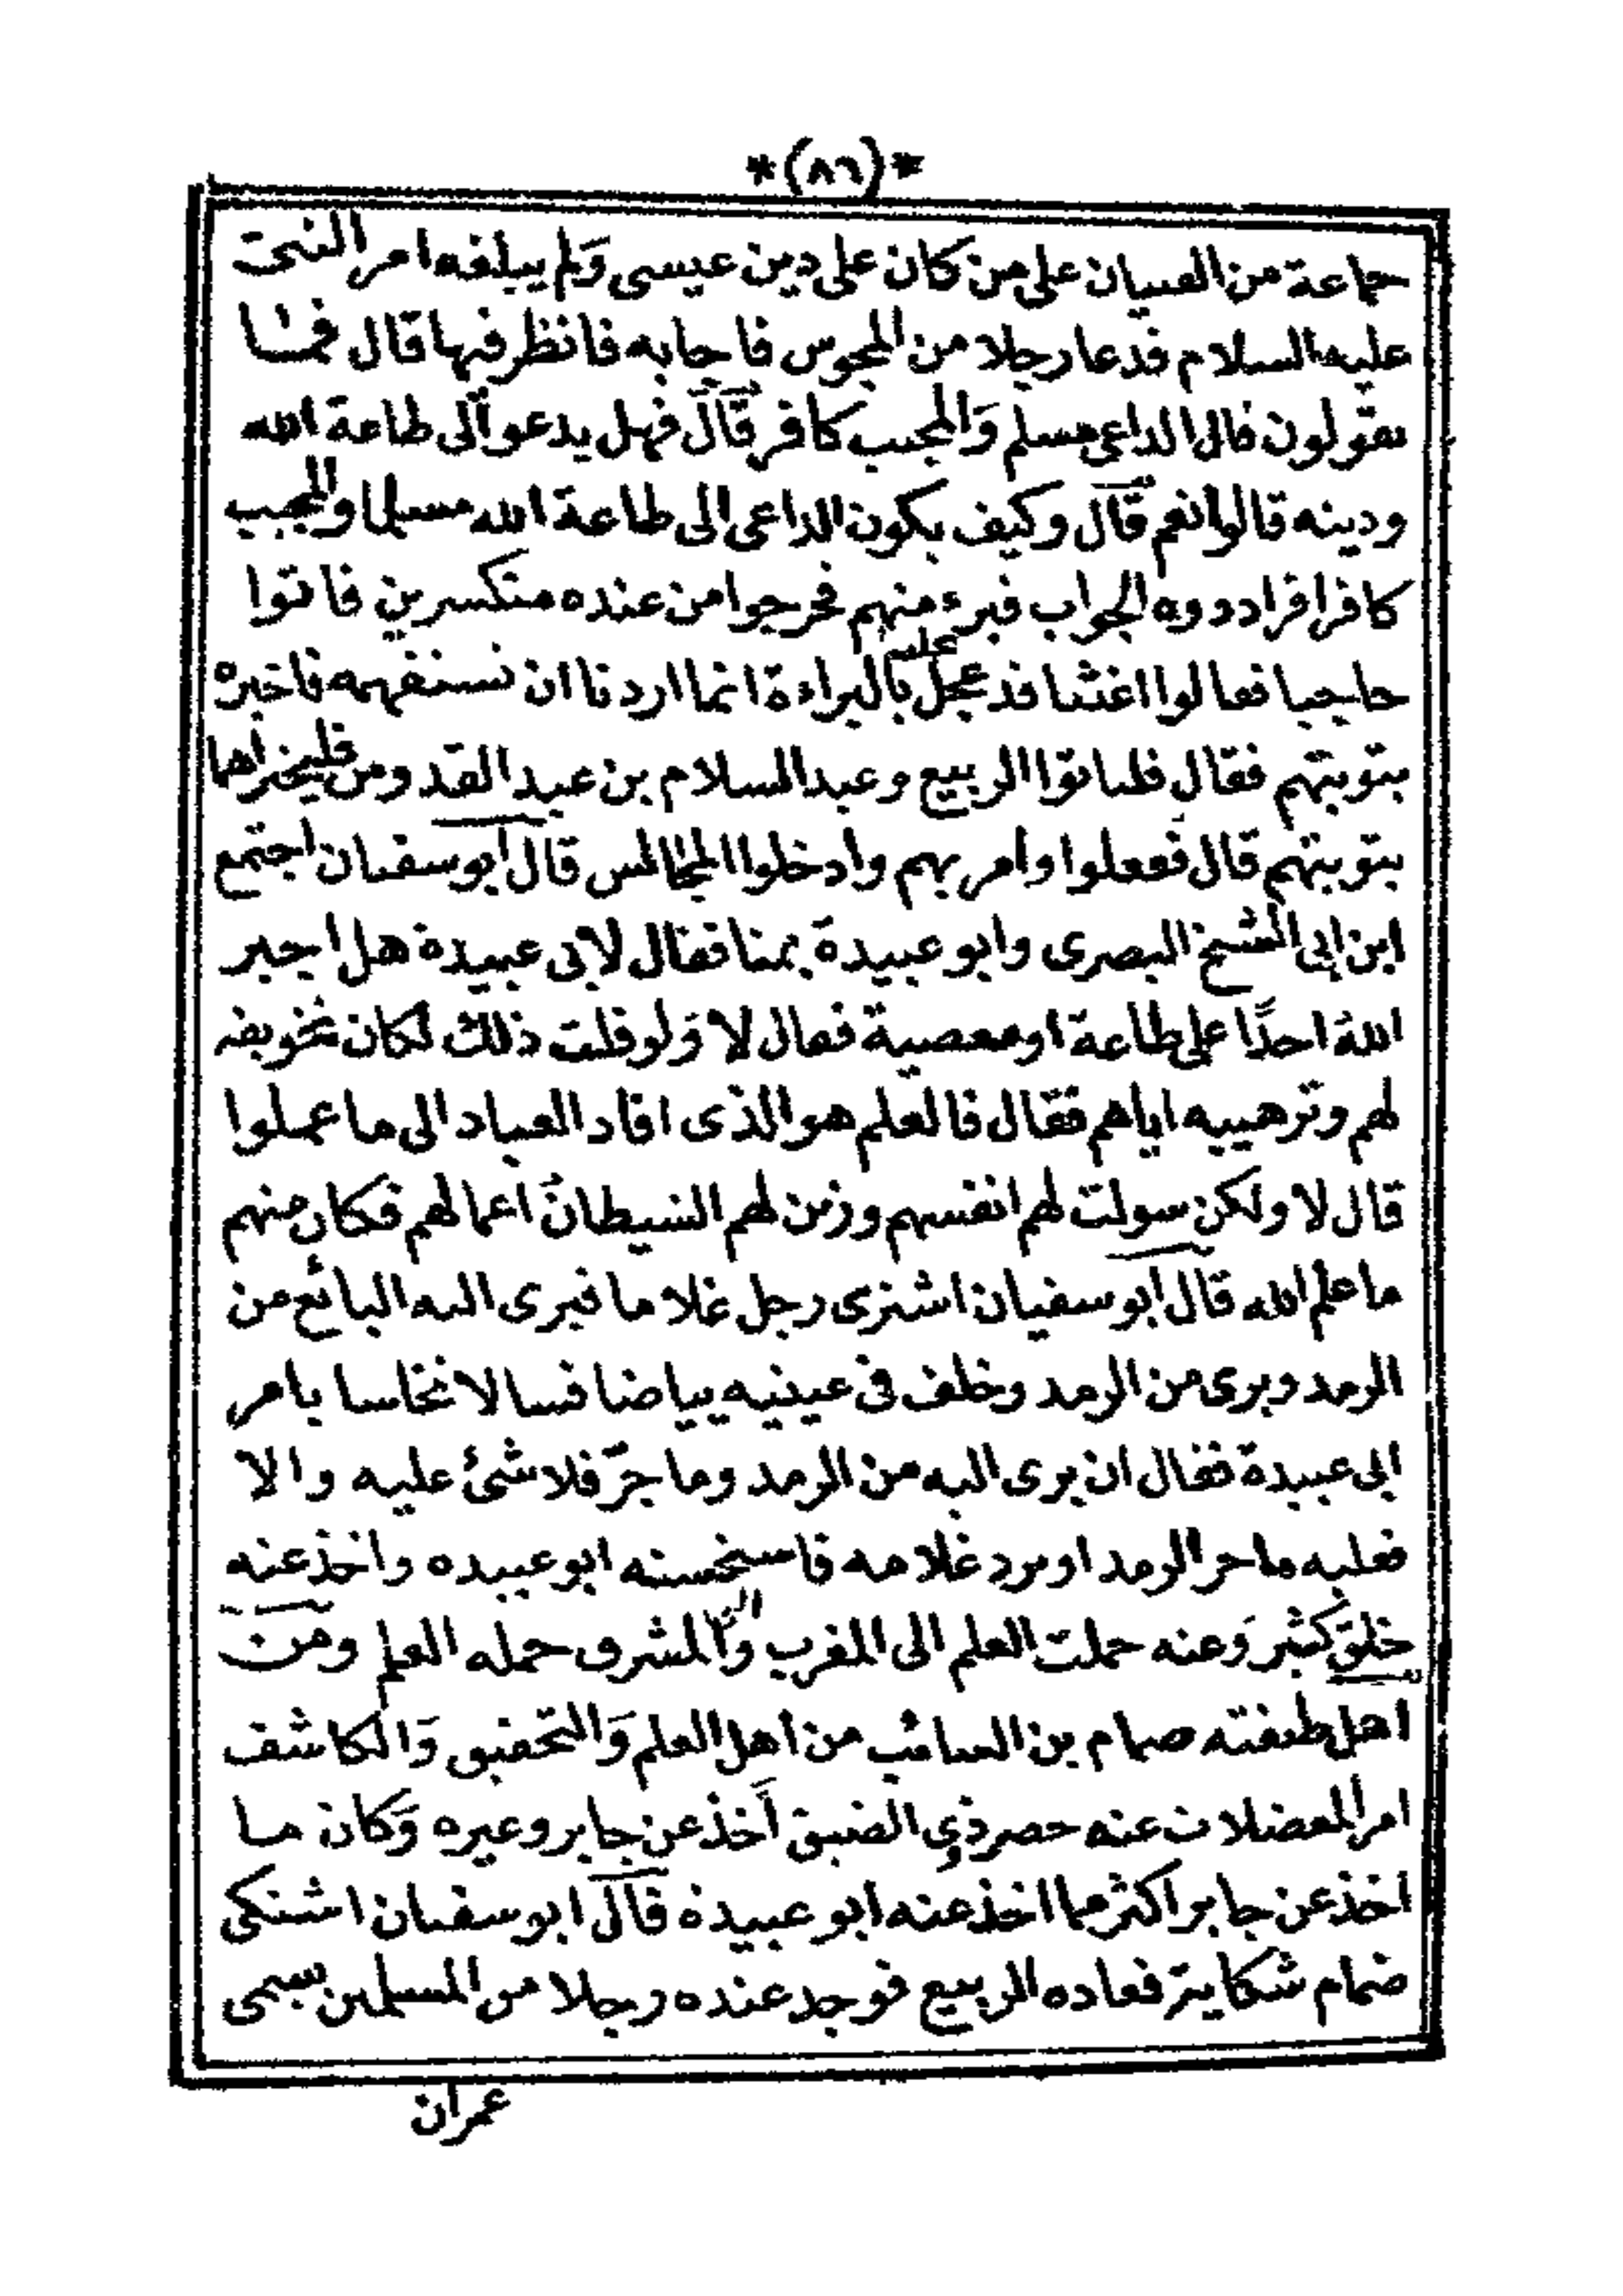 *(٨٦)*
جماعة من الفتيان على من كان على دين عيسى وَلم يبلغه امر النبى
عليه السلام فدعا رجلا من المجوس فاجابه فانظر فيها قال فما
تقولون قال الداعى مسلم وَالمجيب كافر قال فهل يدعو الى طاعة الله
ودينه قالوا نعم قال وكيف يكون الداعى الى طاعة الله مسلما والمجيب
كافرا فرادووه الجواب فبرء منهم فخرجوا من عنده منكسرين فاتوا
حاجبا فقالوا اغثنا قد عجل علينا بالبراءة انما اردنا ان نستفهمه فاخبره
بتوبتهم فقال فلياتوا الربيع وعبد السلام بن عبد القدومن فليخبراهما
بتوبتهم قال ففعلوا وامر بهم وادخلوا المجالس قال ابو سفيان اجتمع
ابن ابى الشيخ البصرى وابو عبيدة بمنا فقال لابى عبيدة هل اجبر
اللهُ احدًا على طاعة او معصية فقال لا وَلو قلت ذلك لكان تخويفه
لهم وترهيبه اياهم فقال فالعلم هو الذى اقاد العباد الى ما عملوا
قال لا ولكن سولت لهم انفسهم وزين لهم الشيطانُ اعمالهم فكان منهم
ما علم الله قال ابو سفيان اشترى رجل غلاما فبرى اليه البائع من
الرمد وبرى من الرمد وخلف فى عينيه بياضا فسالا نخاسا بامر
ابى عبيدة فقال ان برى اليه من الرمد وما جرّ فلا شئ عليه والا
فعليه ما جر الرمد او يرد غلامه فاستحسنه ابو عبيده واخذ عنه
خلق كثير وَعنه حملت العلم الى المغرب وَالى المشرق حمله العلم ومن
اهل طبقته صمام بن السائب من اهل العلم وَالتحقيق وَالكاشف
امر المعضلات عنه حصر ذوى الضيق اخذ عن جابر وغيره وَكان ما
اخذ عن جابر اكثر مما اخذ عنه ابو عبيدة قال ابو سفيان اشتكى
ضمام شكاية فعاده الربيع فوجد عنده رجلا من المسلمين يسمى
عمران